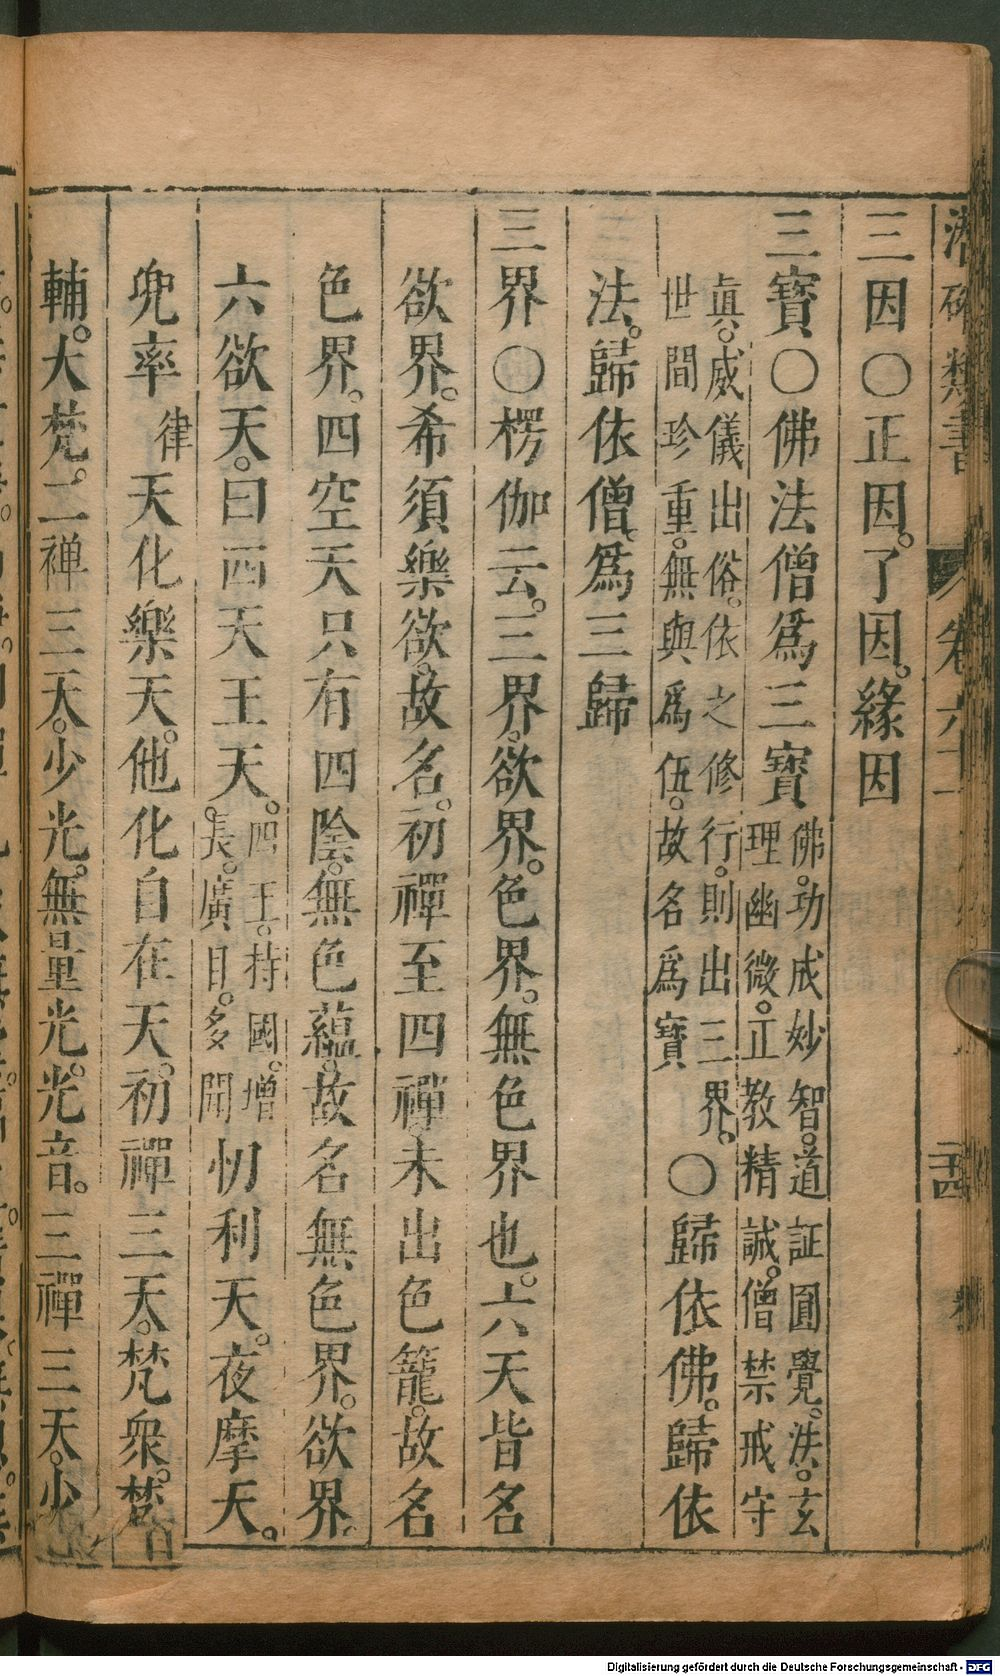 潛確類書 卷六十一 二十四
三因○正因。了因。緣因
三寶○佛法僧爲三寶佛。功成妙智。道証圓覺。法。玄
理幽微。正教精誠。僧禁戒守
眞。威儀出俗。依之修行。則出三界。○歸依佛。歸依
世間珍重。無與爲伍。故名爲寶
法。歸依僧。爲三歸
三界○楞伽云。三界。欲界。色界。無色界也。六天皆名
欲界。希須樂欲。故名。初禪至四禪。未出色籠。故名
色界。四空天只有四陰。無色蘊。故名無色界。欲界。
六欲天。曰四天王天。四王。持國。增
長。廣目。多聞忉利天。夜摩天。
兜率律天化樂天。他化自在天。初禪三天。梵衆。梵
輔。大梵。二禪三天。少光。無量光。光音。三禪三天。少
Digitalisierung gefördert durch die Deutsche Forschungsgemeinschaft - DFG